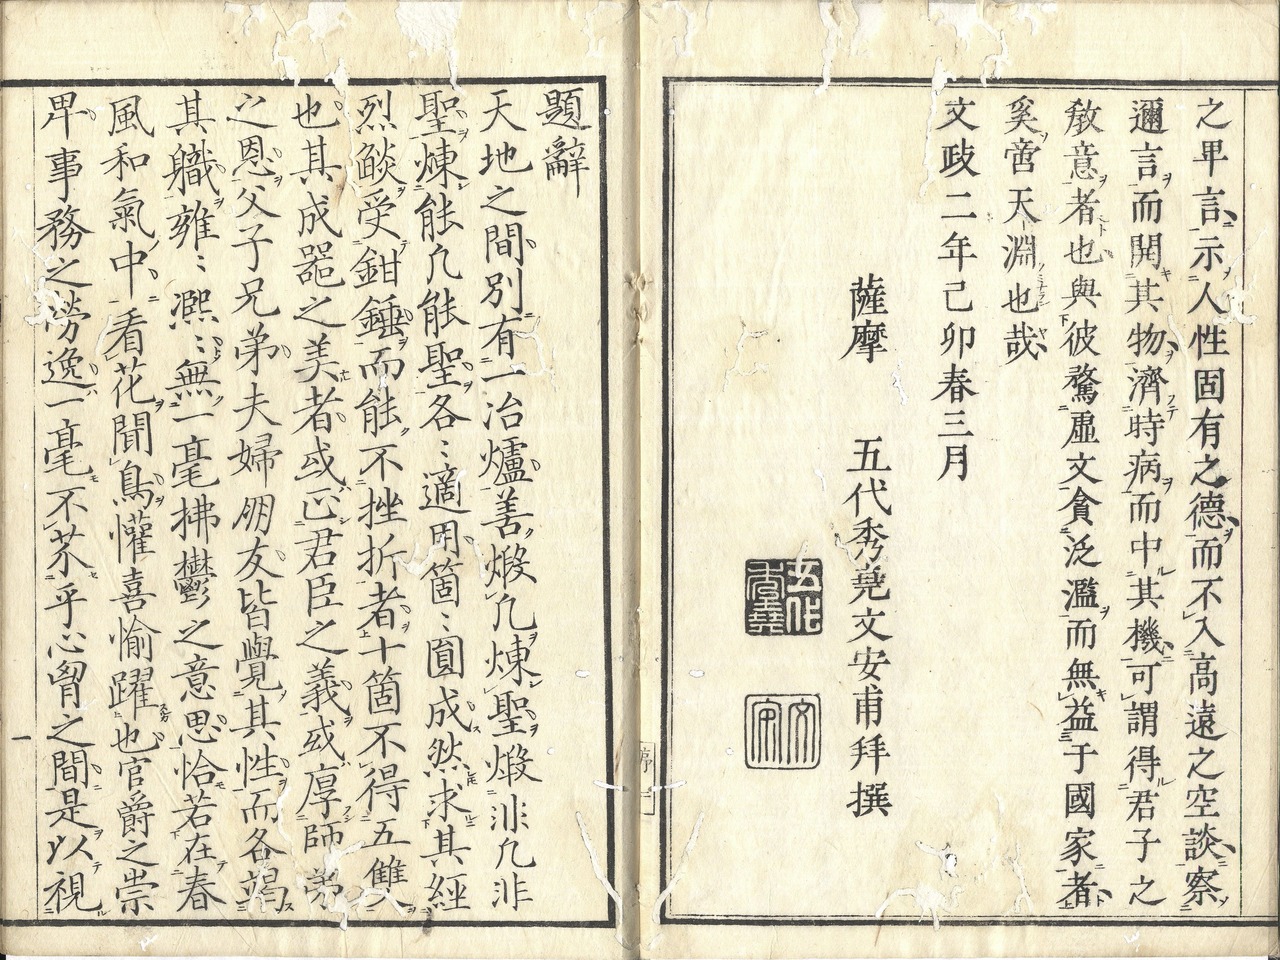 之卑言示人性固有之德而不入高遠之空談察
邇言而開其物濟時病而中其機可謂得君子之
敎意者也與彼騖虛文貪泛濫而無益于國家者
奚啻天淵也哉
文政二年己卯春三月
薩摩 五代秀堯文安甫拜撰
五代秀堯
文安
序
題辭
天地之間別有一冶爐善煅凡煉聖煅非凡非
聖煉能凡能聖各〻適用箇〻圓成然求其經
烈燄受鉗錘而能不挫折者十箇不得五雙
也其成器之美者或正君臣之義或厚師弟
之恩父子兄弟夫婦朋友皆覺其性而各竭
其職雍〻凞〻無一毫拂鬱之意思恰若在春
風和氣中看花聞鳥懽喜愉躍也官爵之崇
卑事務之勞逸一毫不芥乎心胷之間是以視
一